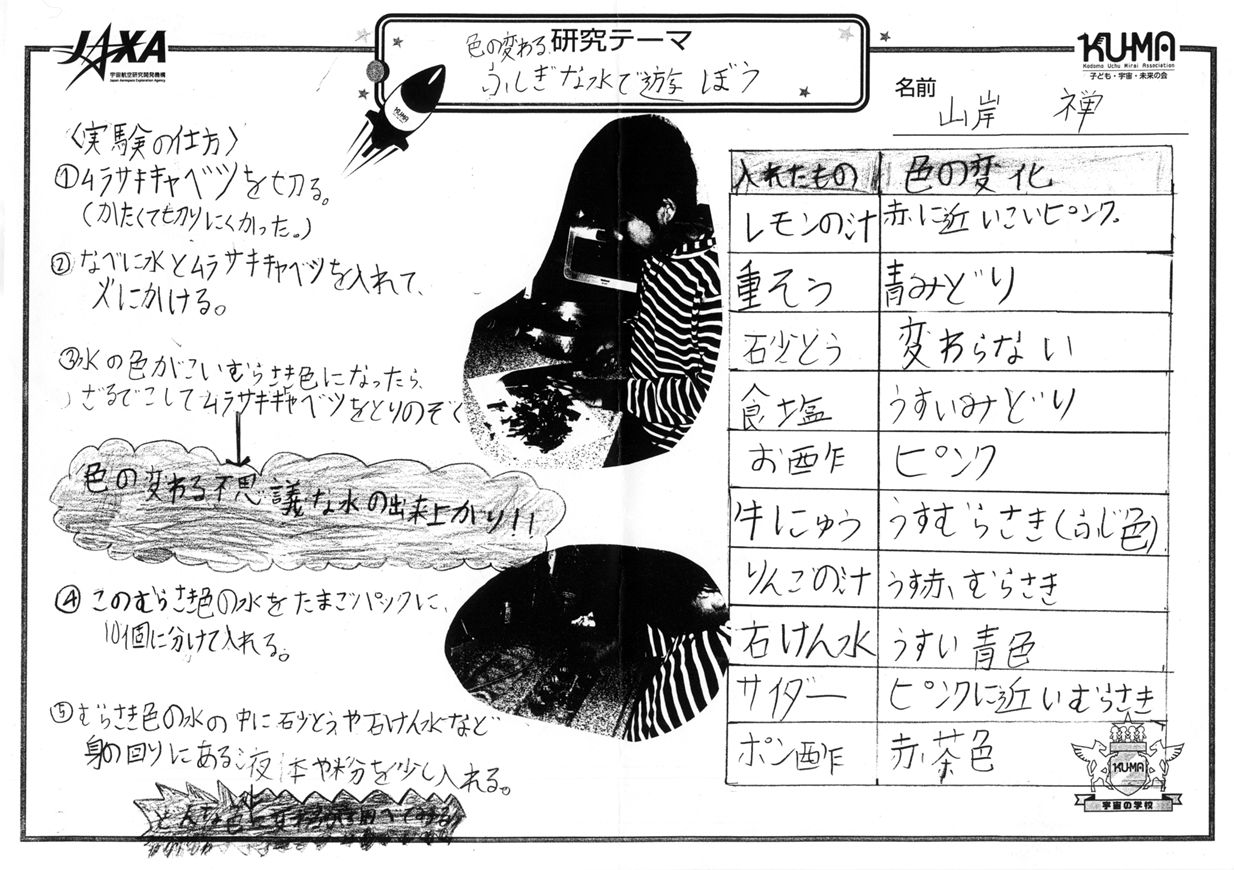 JAXA
宇宙航空研究開発機構
Japan Aerospace Exploration Agency
研究テーマ
色の変わる
ふしぎな水で遊ぼう
KUMA
KU-MA
Kodomo Uchu Mirai Association
子ども・宇宙・未来の会
名前
山岸 禅
〈実験の仕方〉
①ムラサキキャベツを切る。
(かたくて切りにくかった。)
②なべに水とムラサキキャベツを入れて、
火にかける。
③水の色がこいむらさき色になったら、
ざるでこしてムラサキキャベツをとりのぞく
色の変わる不思議な水の出来上がり!!
④このむらさき色の水をたまごパックに、
10個に分けて入れる。
⑤むらさき色の水の中に砂とうや石けん水など
身の回りにある液体や粉を少し入れる。
入れたもの 色の変化
レモンの汁 赤に近いこいピンク。
重そう 青みどり
砂とう 変わらない
食塩 うすいみどり
お酢 ピンク
牛にゅう うすむらさき(ふじ色)
りんごの汁 うす赤、むらさき
石けん水 うすい青色
サイダー ピンクに近いむらさき
ポン酢 赤茶色
KU-MA
宇宙の学校